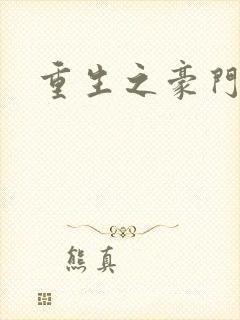 重生之豪門
熊真